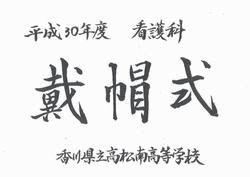 平成30年度 看護科
戴帽式
香川県立高松南高等学校